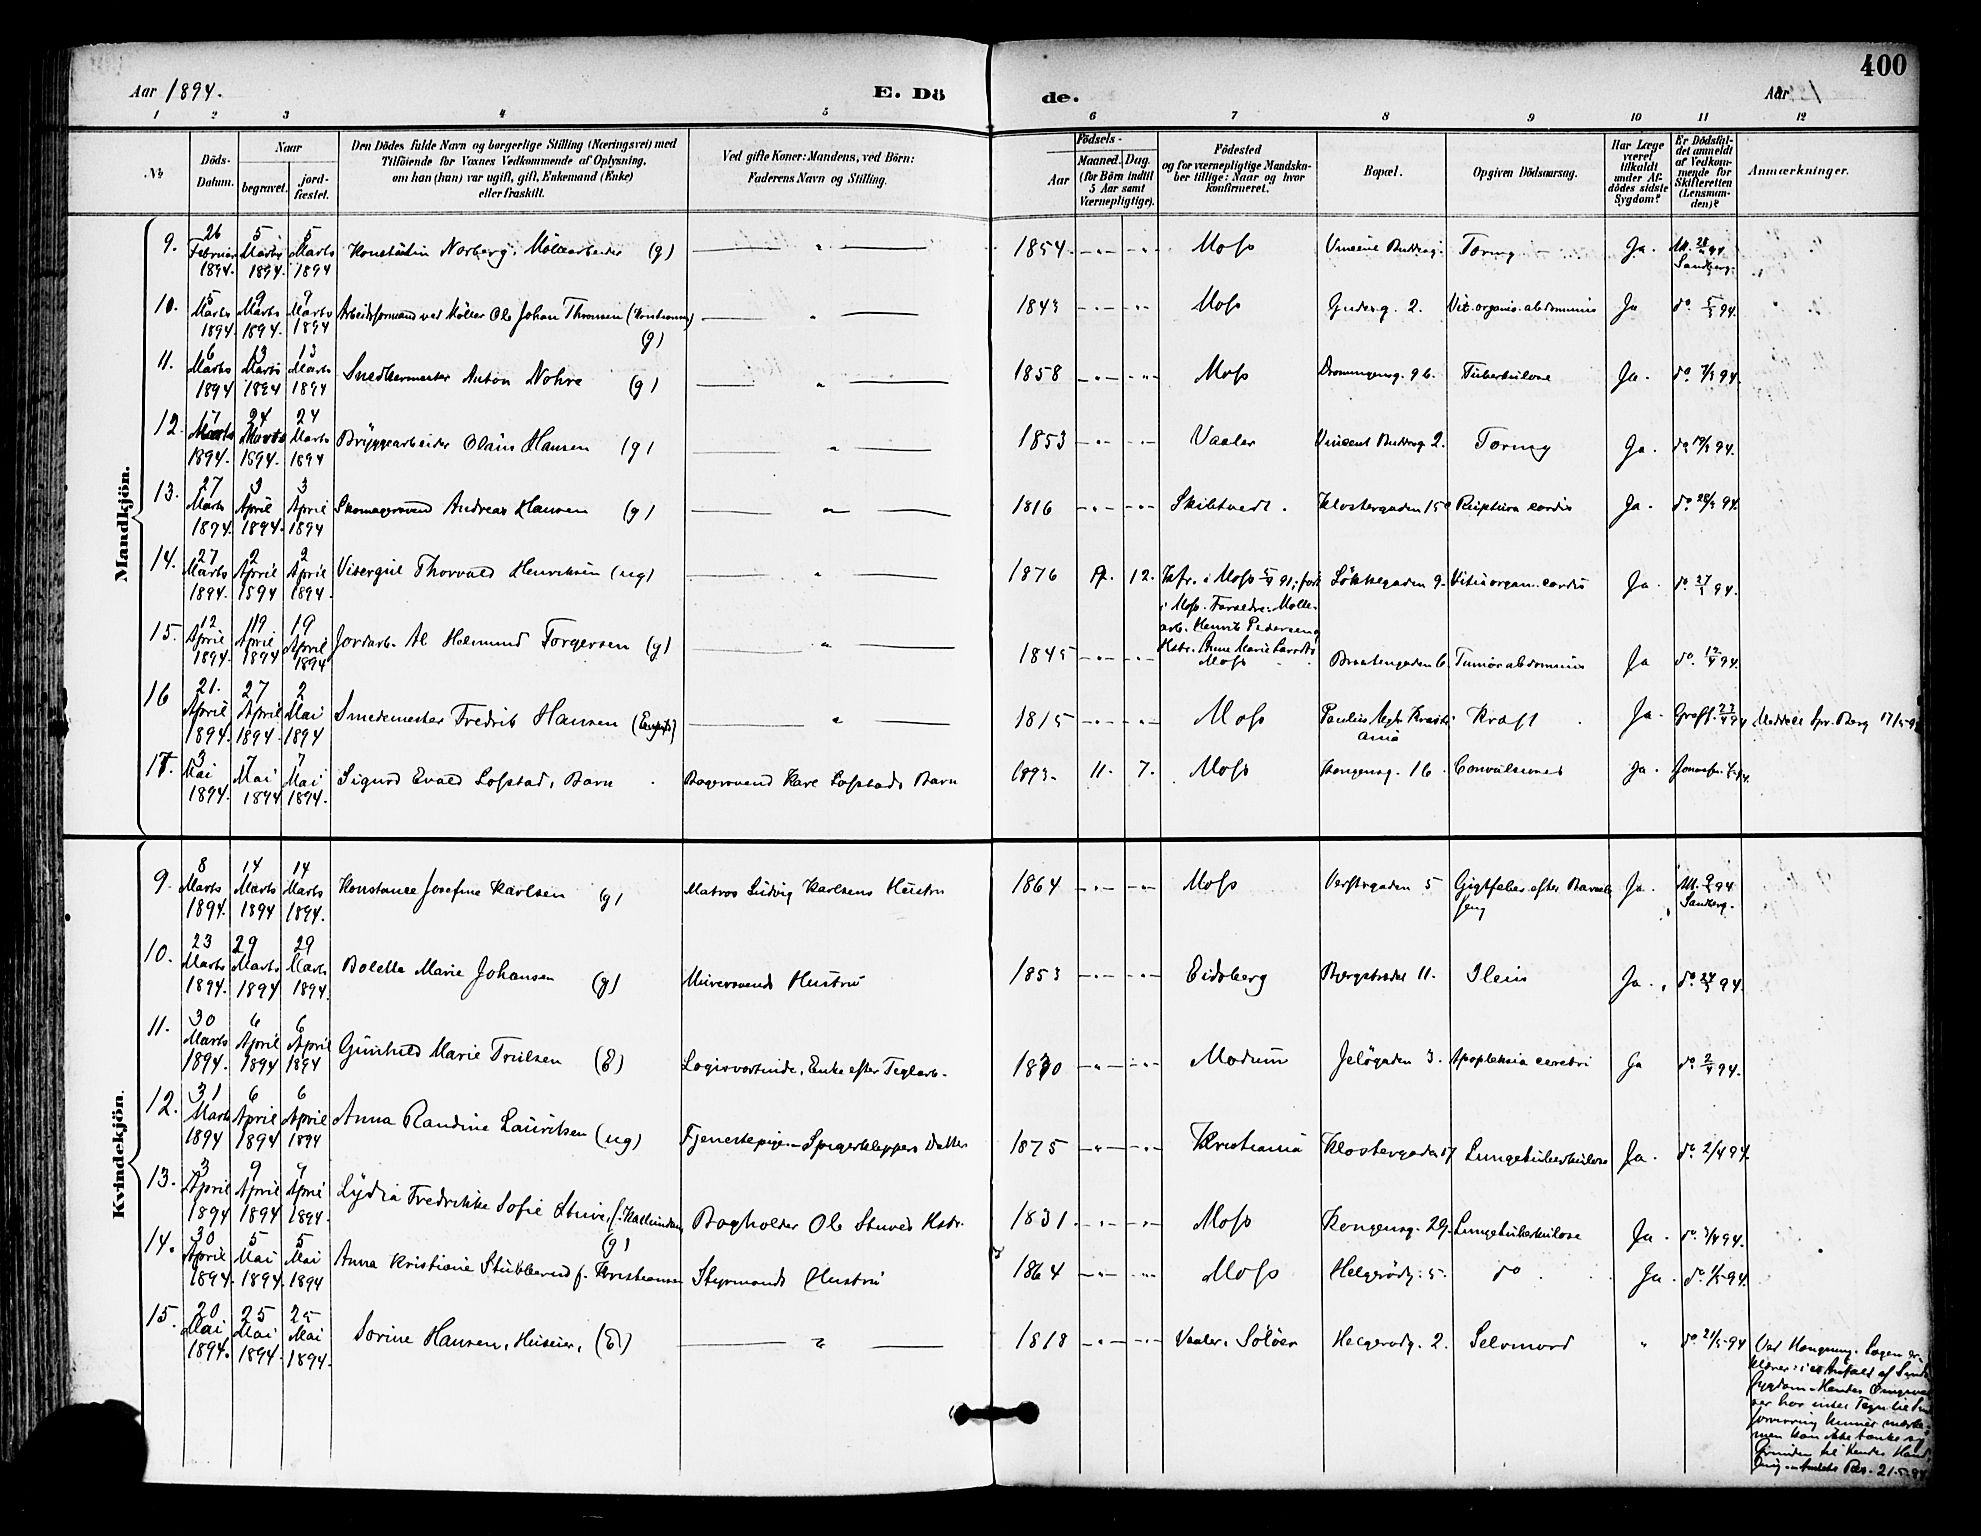 400
Aar 1894.
E. Dö de.
Aar
1 2 3 4 5 6 7 8 9 10 11 12
No
Döds-Datum.
Naar
begravet.
jord-fæstet.
Den Dödes fulde Navn og borgerlige Stilling (Næringsvei) med
Tilföiende for Voxnes Vedkommende af Oplysning,
om han (hun) var ugift, gift, Enkemand (Enke)
eller fraskilt.
Ved gifte Koner: Mandens, ved Börn:
Faderens Navn og Stilling.
Födsels-
Aar
Maaned. Dag.
(for Börn indtil
5 Aar samt
Værnepligtige).
Födested
og for værnepligtige Mandska-
ber tillige: Naar og hvor
konfirmeret.
Bopæl.
Opgiven Dödsaarsag.
Har Læge
været
tilkaldt
under Af-
dödes sidste
Sygdom?
Er Dödsfal-
det anmeldt
af Vedkom-
mende for
Skifteretten
(Lensman-
den)?
Anmærkninger.
Mandkjön.
9. 26 Februar 1894. 5 Marts 1894. 5 Marts 1894 Konstantin Norberg, Möllearbeider (g) 1854. Moss Vincent Buddesg. Ja. 28/2 94 Sandberg.
10. 5 Marts 1894. 9 Marts 1894. 9 Marts 1894 Arbeidsformand ved Möller Ole Johan Thronsen (g) 1843 Moss Gudesg. 2. Vit. organic. abdominis Ja do 5/3 94.
11. 6 Marts 1894 13 Marts 1894 13 Marts 1894 Snedkermester Anton Nohre (g) 1858 Moss Dronningensg. 9 b. Tuberkulose Ja. do 7/3 94.
12. 17 Marts 1894. 24 Marts 1894. 24 Marts 1894 Bryggearbeider Olaus Hansen (g) 1853 Vaaler Vincent Buddesg 2. Ja. do 94.
13. 27 Marts 1894. 3 April 1894. 3 April 1894 Skomagersvend Andreas Hansen (g) 1816 Skibtvedt. Klostergaden 15 Ruptura cordis Ja. do 28/3 94.
14. 27 Marts 1894. 2 April 1894 2 April 1894. Visergut Thorvald Henriksen (ug) 1876 12. Kfr. i Moss 91; född Lökkegaden 9. Vitium organ. cordis Ja do 27/3 94.
i Moss. Forældre: Mölle-
arb. Henrik Pedersen og
Hstr. Anne Marie
15. 12 April 1894. 19 April 1894 19 April 1894 Jordarb. Helmund Torgersen (g) 1845 Moss Braatengaden 6. Tumor abdominis Ja do 12/4 94.
16 21. April 1894. 27 April 1894. 2 Mai 1894 Smedemester Fredrik Hansen 1815 Moss Kræft Ja.
17. 3 Mai 1894. 7 Mai 1894 7 Mai 1894. Sigurd Evald Lofstad, Barn Bagersvend Karl Lofstads Barn 1893. 11. 7. Moss Kongensg. 16. Convulsiones Ja.
Kvindekjön.
9. 8 Marts 1894. 14 Marts 1894 14 Marts 1894. Konstance Josefine Karlsen (g) Matros Ludvig Karlsens Hustru 1864 Moss Verftsgaden 5 Gigtfeber efter Barsel-
seng Ja. 9/3 94 Sandberg.
10. 23 Marts 1894. 29 Marts 1894 29 Marts 1894. Bolette Marie Johansen (g) Murersvends Hustru 1853 Eidsberg 11. Ileus Ja. do 24/3 94.
11. 30 Marts 1894. 6 April 1894 6 April 1894 Gunhild Marie Trulsen (E) Logisvertinde, Enke efter Teglarb. 1830 Modum Jelögaden 3. Apoplexia cerebri Ja do 2/4 94.
12. 31 Marts 1894 6 April 1894 6 April 1894 Anna Randine Lauritsen (ug) Tjenestepige - Spigerklippers Datter 1875 Kristiania Klostergaden 17 Lungetuberkulose Ja. do 2/4 94.
13. 3 April 1894 9 April 1894 9 April 1894. Lydia Fredrikke Sofie Stuve, (g) Bogholder Ole Stuves Hstr. 1831. Moss Kongensg. 29. Lungetuberkulose Ja. do 3/4 94.
14. 30 April 1894. 5 Mai 1894. 5 Mai 1894 Anna Kristiane Stubberud f. Kristiansen Styrmands Hustru 1864 Moss Helgerödg. 5. do Ja. do 1/5 94.
15. 20 Mai 1894. 25 Mai 1894. 25 Mai 1894. Sorine Hansen, Huseier, (E) 1818 Vaaler, Solöer Helgerödg. 2. Selvmord do 21/5 94
Ved Hængning. Lægen er-
klærer: i et Anfald af Sinds-
sygdom. Hendes Omgivel-
ser har intet Tegn til Sinds-
forvirring kunnet mærke
men kan ikke tænke sig
Grunden til hendes Hand-
ling. 21.5.94